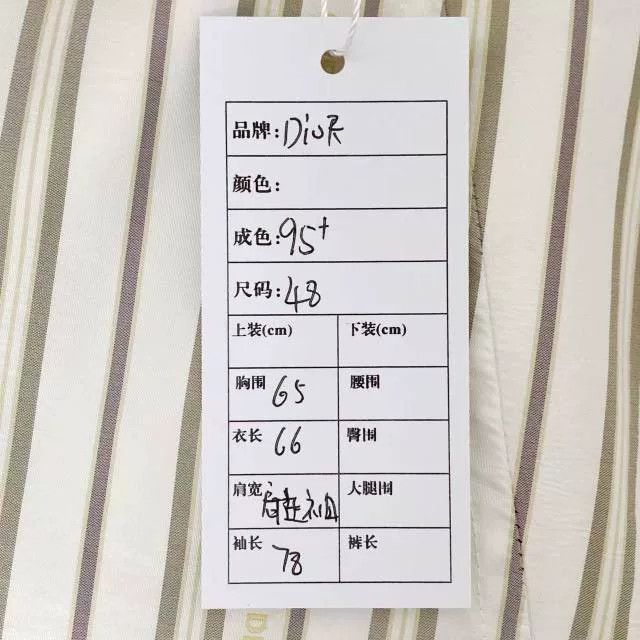 品牌: Dior
颜色:
成色: 95+
尺码: 48
上装(cm) 下装(cm)
胸围 65 腰围
衣长 66 臀围
肩宽 肩连袖 大腿围
袖长 78 裤长